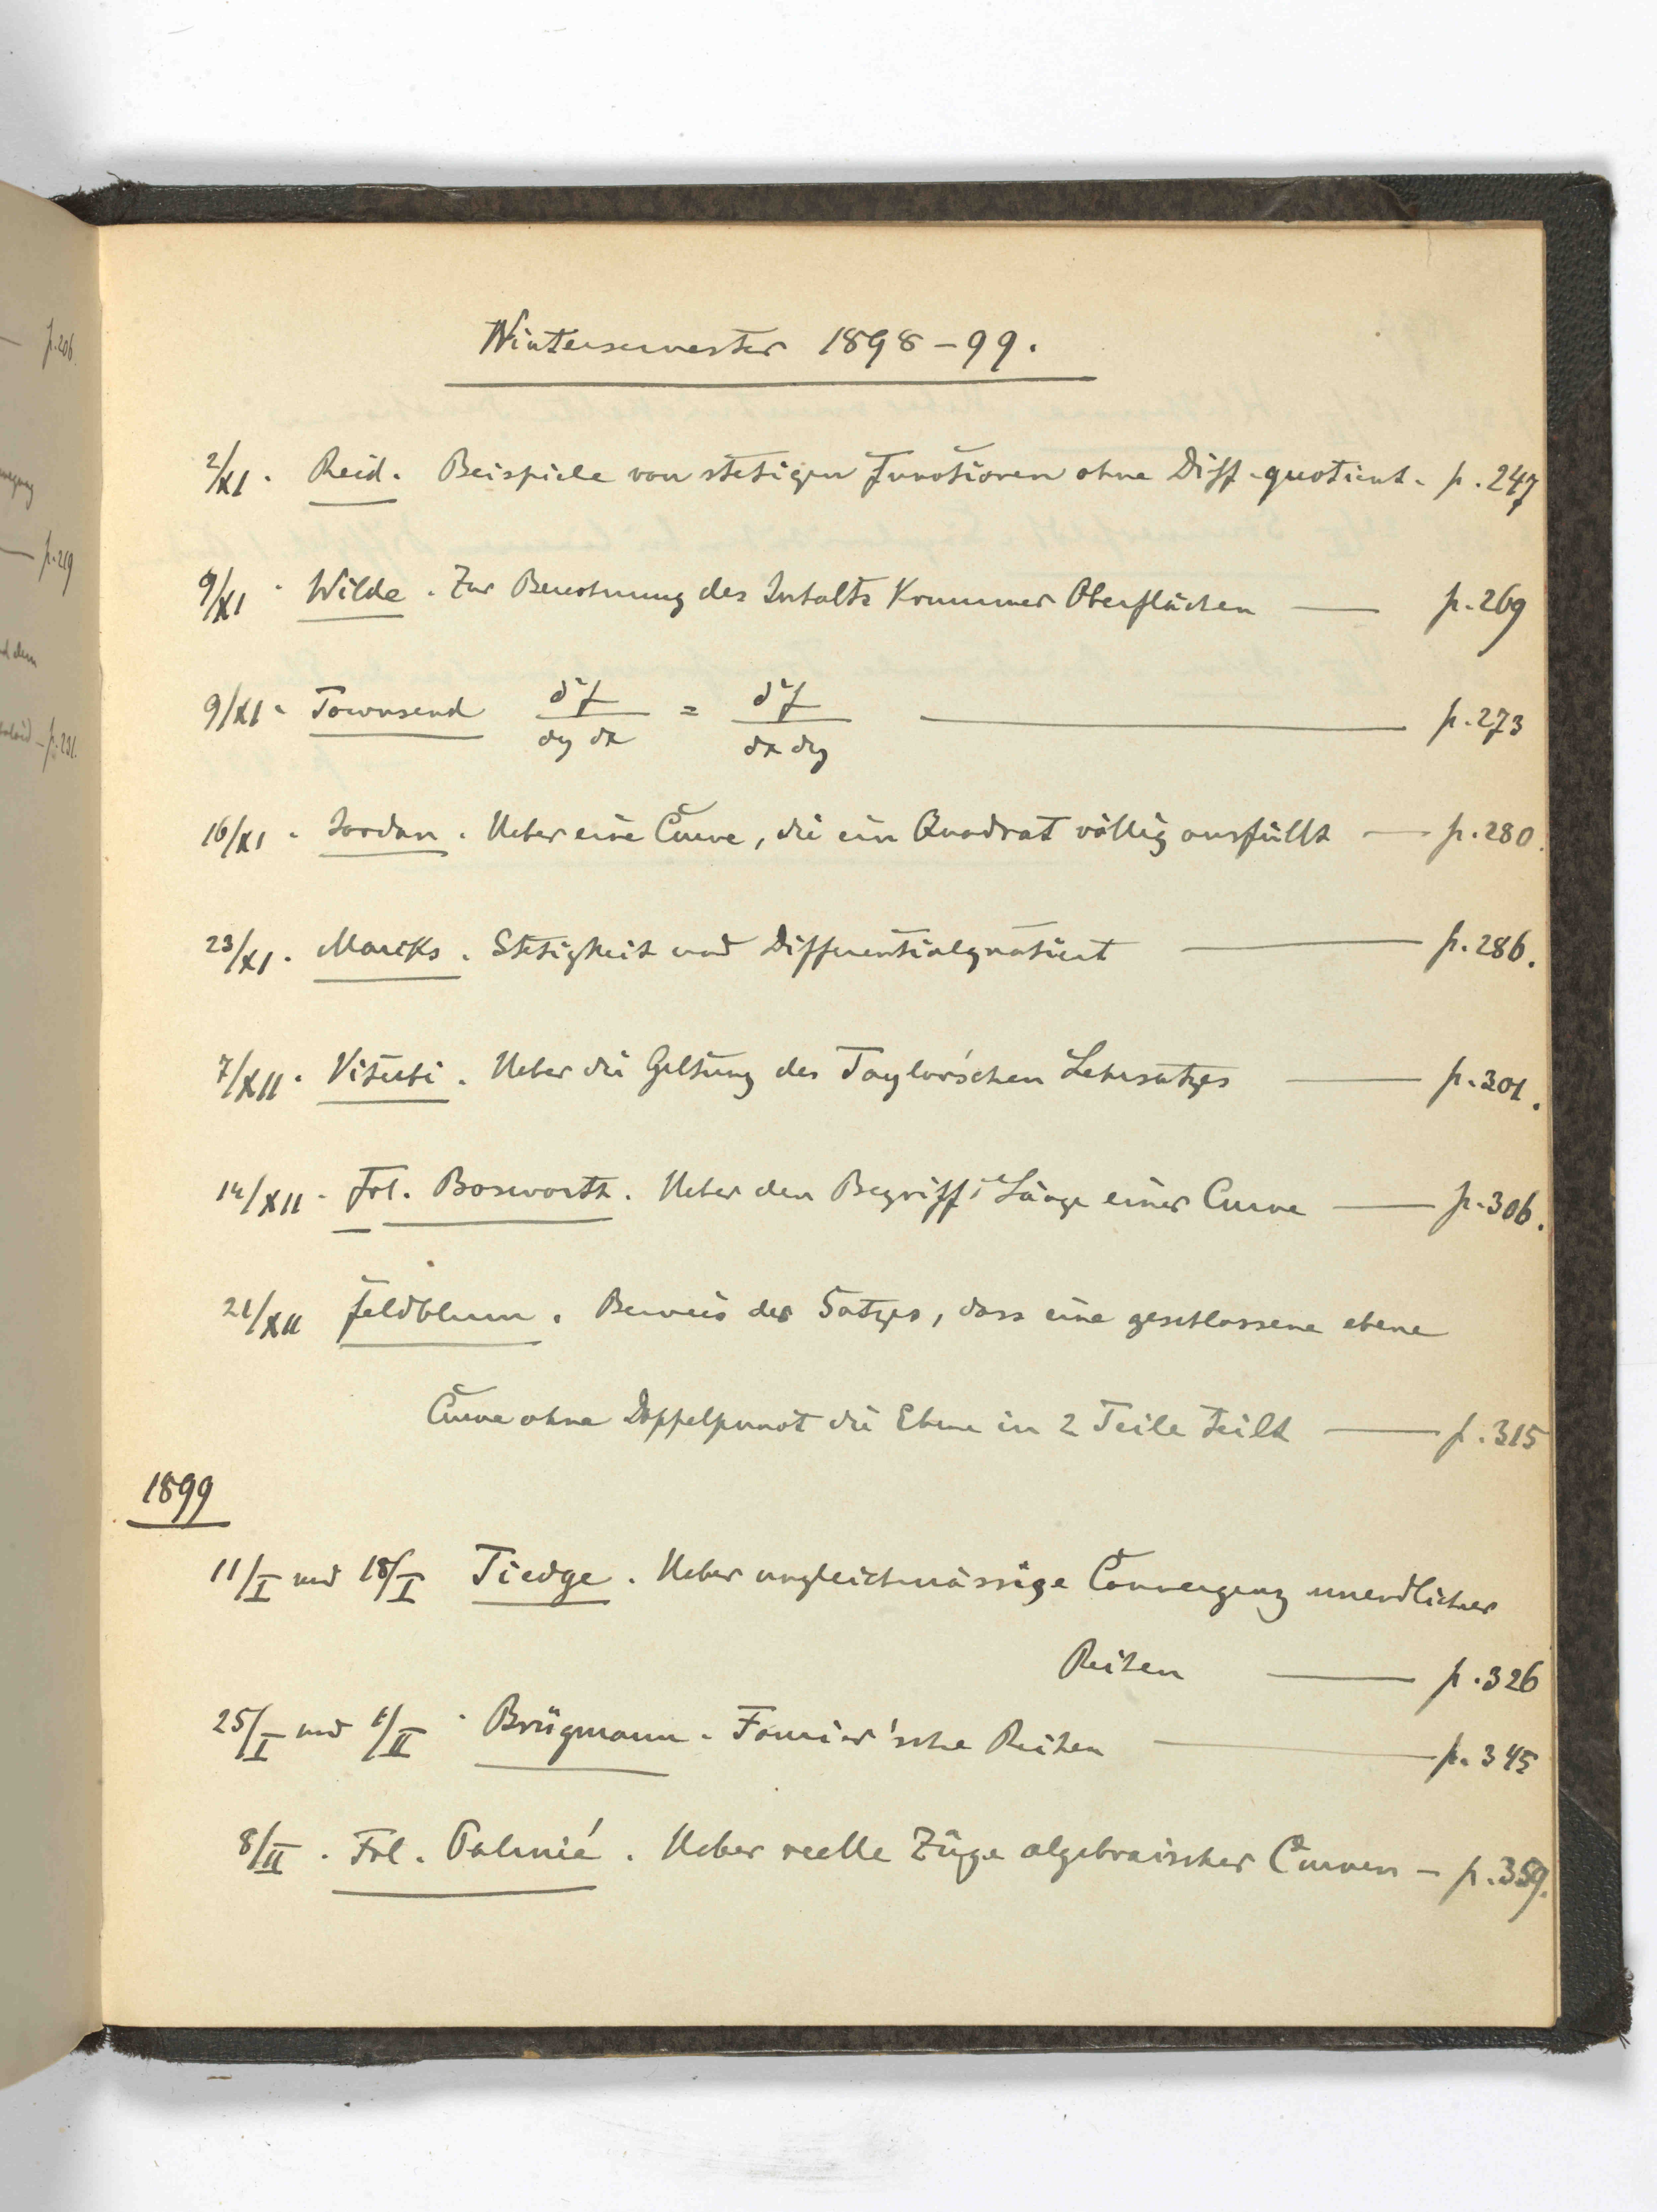 p. 206.
p. 219
p. 231.
Wintersemester 1898-99.
2/XI. Reid. Beispiele von stetigen Functionen ohne Diff.quotient. p. 247
9/XI. Wilde. Zur Berechnung des Inhalts Krummer Oberflächen — p. 269
9/XI. Townsend ∂²f/∂y ∂x = ∂²f/∂x ∂y — p. 273
16/XI. Jordan. Ueber eine Curve, die ein Quadrat völlig ausfüllt — p. 280.
23/XI. Marcks. Stetigkeit und Differentialquotient — p. 286.
7/XII. Viterbi. Ueber die Geltung des Taylor'schen Lehrsatzes — p. 301.
14/XII. Frl. Bosworth. Ueber den Begriff: Länge einer Curve — p. 306.
21/XII Feldblum. Beweis des Satzes, dass eine geschlossene ebene
Curve ohne Doppelpunct die Ebene in 2 Teile teilt — p. 315
1899
11/I und 18/I Tiedge. Ueber ungleichmässige Convergenz unendlicher
Reihen — p. 326
25/I und 1/II. Brügmann. Fourier'sche Reihen — p. 345
8/II. Frl. Palmié. Ueber reelle Züge algebraischer Curven — p. 359.